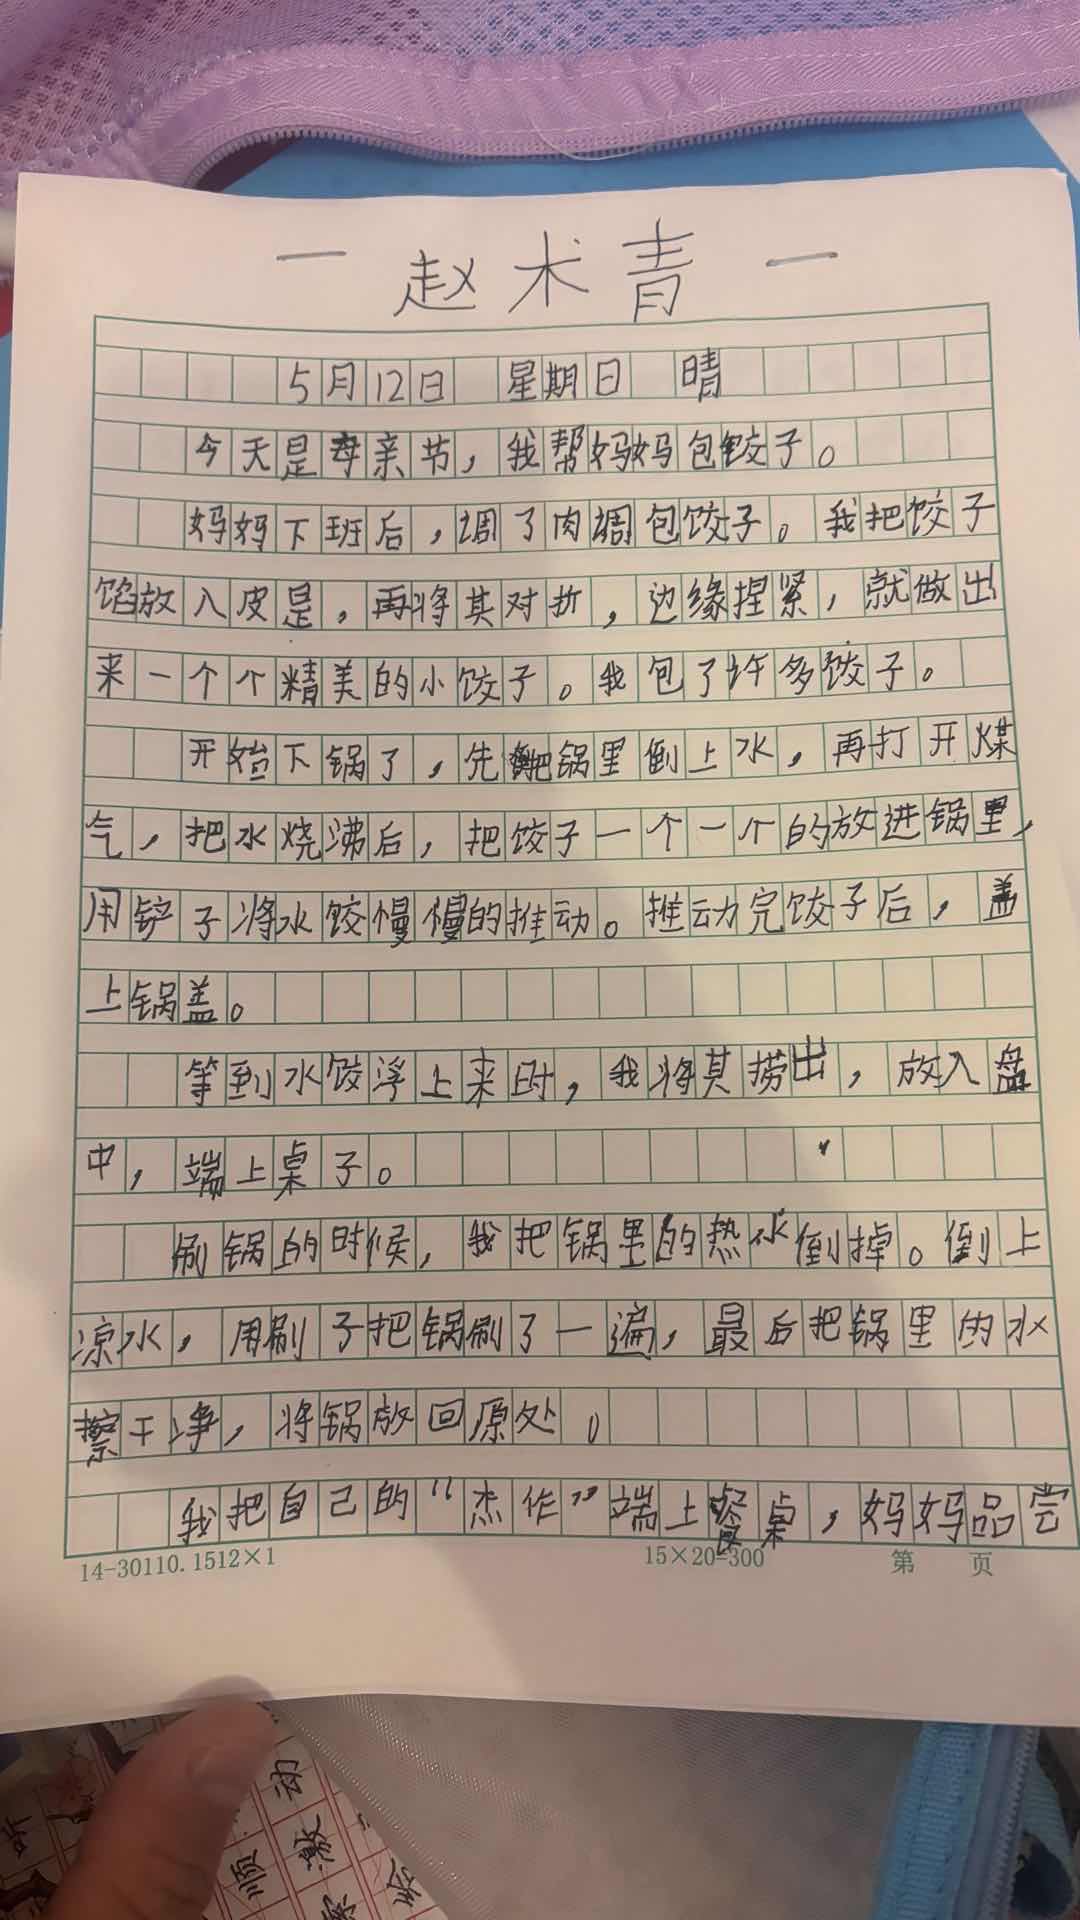 一 赵术青 一
5月12日 星期日 晴
今天是母亲节，我帮妈妈包饺子。
妈妈下班后，调了肉调包饺子。我把饺子
馅放入皮是，再将其对折，边缘捏紧，就做出
来一个个精美的小饺子。我包了许多饺子。
开始下锅了，先把锅里倒上水，再打开煤
气，把水烧沸后，把饺子一个一个的放进锅里，
用铲子将水饺慢慢的推动。推动完饺子后，盖
上锅盖。
等到水饺浮上来时，我将其捞出，放入盘
中，端上桌子。
刷锅的时候，我把锅里的热水倒掉。倒上
凉水，用刷子把锅刷了一遍，最后把锅里的水
擦干净，将锅放回原处。
我把自己的“杰作”端上餐桌，妈妈品尝
14-30110.1512×1 15×20=300 第 页
动
听 顺 激